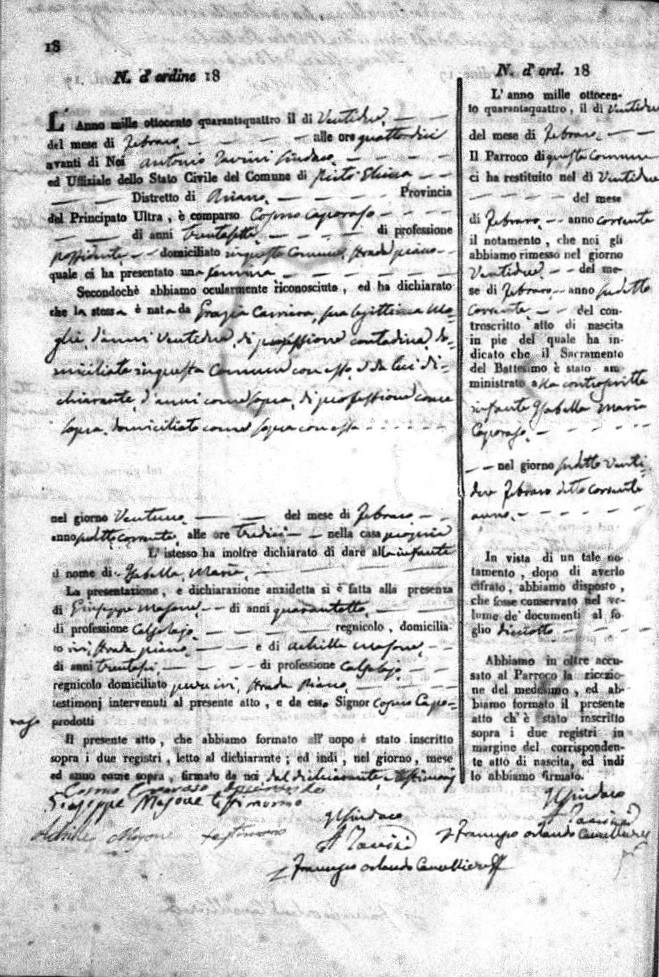 18
N. d'ordine 18
L' Anno mille ottocento quarantaquattro il dì Ventidue
del mese di Febraro alle ore quattordici
avanti di Noi Antonio Sindaco
ed Uffiziale dello Stato Civile del Comune di
Distretto di Ariano Provincia
del Principato Ultra, è comparso Cosmo Caporaso
di anni trentasette di professione
possidente domiciliato in questo Comune, strada piano
quale ci ha presentato una femina
Secondochè abbiamo ocularmente riconosciuto, ed ha dichiarato
che la stessa è nata da Grazia sua legittima mo-
glie, d'anni Ventidue, di professione contadina, do-
miciliata in questo Comune con esso, e da lui di-
chiarante, d'anni come sopra, di professione come
sopra, domiciliato come sopra con essa
nel giorno Ventuno del mese di Febraro
anno sudetto corrente, alle ore tredici nella casa propria
L' istesso ha inoltre dichiarato di dare alla infante
il nome di Isabella Maria
La presentazione, e dichiarazione anzidetta si è fatta alla presenza
di Giuseppe di anni quarantotto
di professione Calzolajo regnicolo, domicilia-
to ivi, strada piano e di Achille
di anni di professione Calzolajo
regnicolo domiciliato pure ivi, strada Piano
testimonj intervenuti al presente atto, e da esso Signor Cosmo Capo-
raso prodotti
Il presente atto, che abbiamo formato all' uopo è stato inscritto
sopra i due registri, letto al dichiarante; ed indi, nel giorno, mese
ed anno come sopra, firmato da noi, dal dichiarante e testimonj
Cosmo Caporaso
Giuseppe testimonio
Achille testimonio
Il Sindaco
Francesco Orlando Cancelliere
N. d'ord. 18
L' anno mille ottocen-
to quarantaquattro, il dì Ventidue
del mese di Febraro
Il Parroco di questo Comune
ci ha restituito nel dì Ventidue
del mese
di Febraro anno corrente
il notamento, che noi gli
abbiamo rimesso nel giorno
Ventidue del me-
se di Febraro anno sudetto
corrente del con-
troscritto atto di nascita
in piè del quale ha in-
dicato che il Sacramento
del Battesimo è stato am-
ministrato alla controscritta
infante Isabella Maria
Caporaso
nel giorno sudetto Venti-
due Febraro detto corrente
anno
In vista di un tale no-
tamento, dopo di averlo
cifrato, abbiamo disposto,
che fosse conservato nel vo-
lume de' documenti al fo-
glio diciotto
Abbiamo in oltre accu-
sato al Parroco la ricezio-
ne del medesimo, ed ab-
biamo formato il presente
atto ch' è stato inscritto
sopra i due registri in
margine del corrisponden-
te atto di nascita, ed indi
lo abbiamo firmato.
Il Sindaco
Francesco Orlando Cancelliere